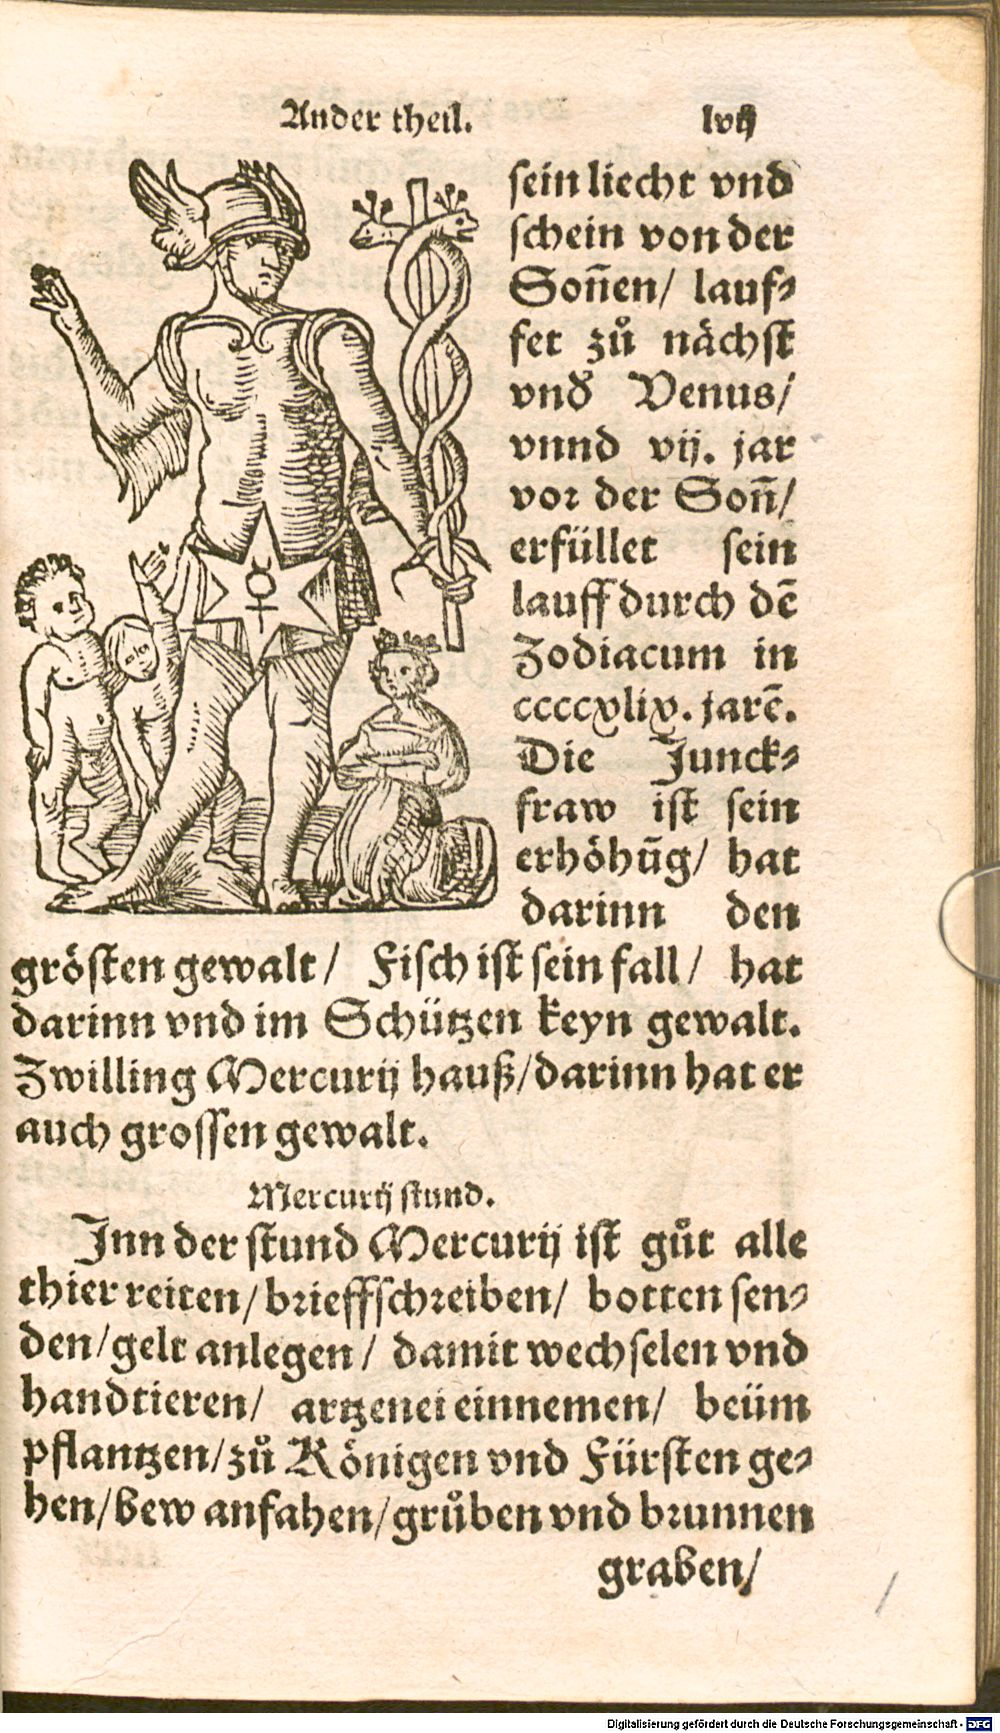 Ander theil. lvij
sein liecht vnd
schein von der
Soñen/ lauf⸗
fet zů nächst
vnd Venus/
vnnd vij. jar
vor der Soñ/
erfüllet sein
lauff durch dẽ
Zodiacum in
ccccxlix. jarẽ.
Die Junck⸗
fraw ist sein
erhöhũg/ hat
darinn den
grösten gewalt/ Fisch ist sein fall/ hat
darinn vnd im Schützen keyn gewalt.
Zwilling Mercurij hauß/darinn hat er
auch grossen gewalt.
Mercurij stund.
Inn der stund Mercurij ist gůt alle
thier reiten/brieffschreiben/ botten sen⸗
den/gelt anlegen/ damit wechselen vnd
handtieren/ artzenei einnemen/ beüm
pflantzen/zů Königen vnd Fürsten ge⸗
hen/bew anfahen/grůben vnd brunnen
graben/
☿
Digitalisierung gefördert durch die Deutsche Forschungsgemeinschaft - DFG